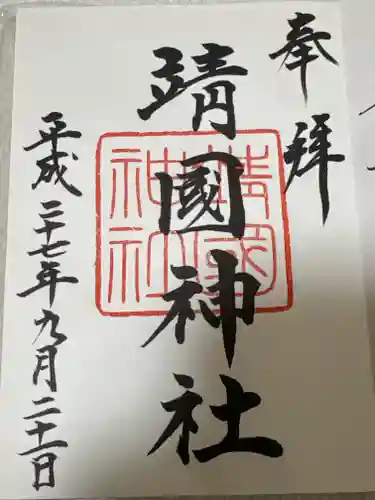 奉拝
靖國神社
靖國神社
平成二十七年九月二十一日